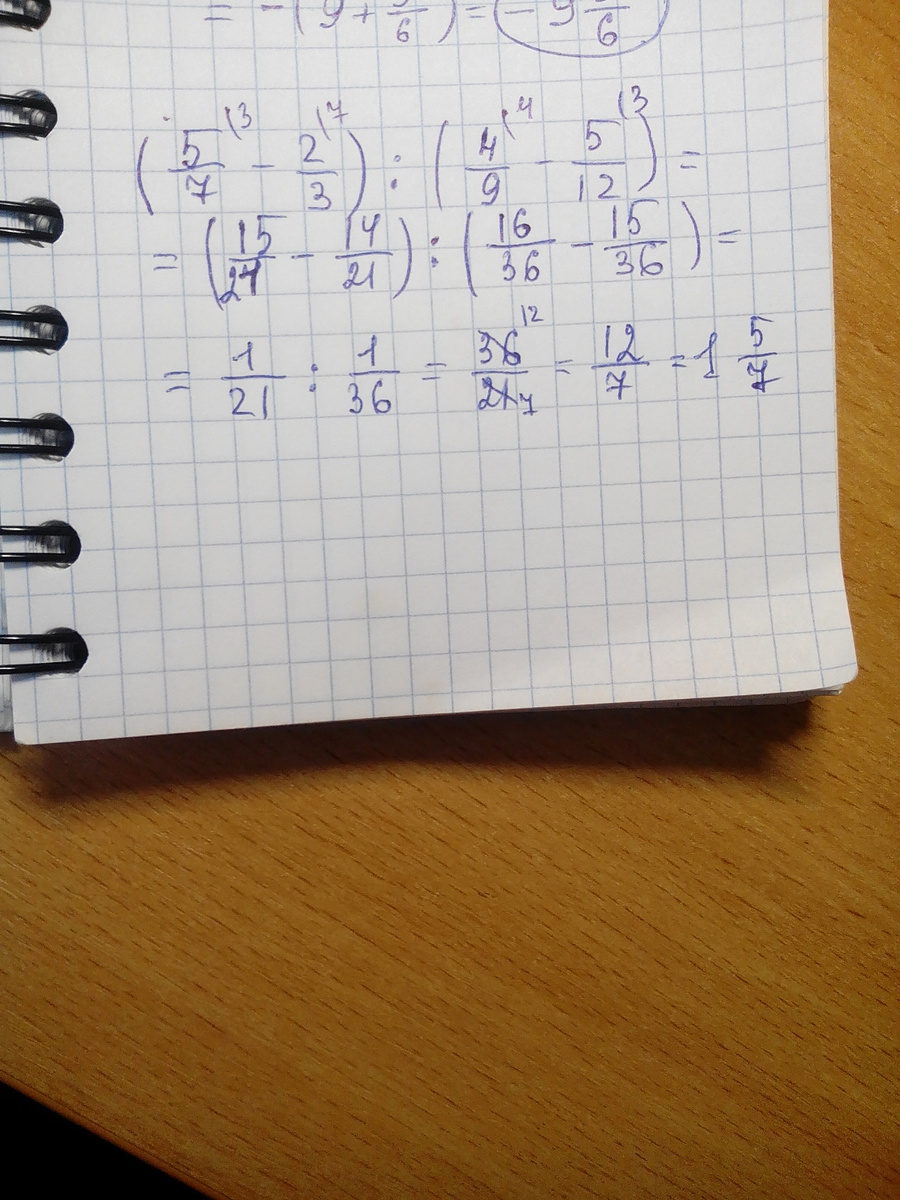 = -(9 + 5/6) = -9 5/6
(5/7 \3 - 2/3 \7) : (4/9 \4 - 5/12 \3) =
= (15/21 - 14/21) : (16/36 - 15/36) =
= 1/21 : 1/36 = 36 12/21 7 = 12/7 = 1 5/7